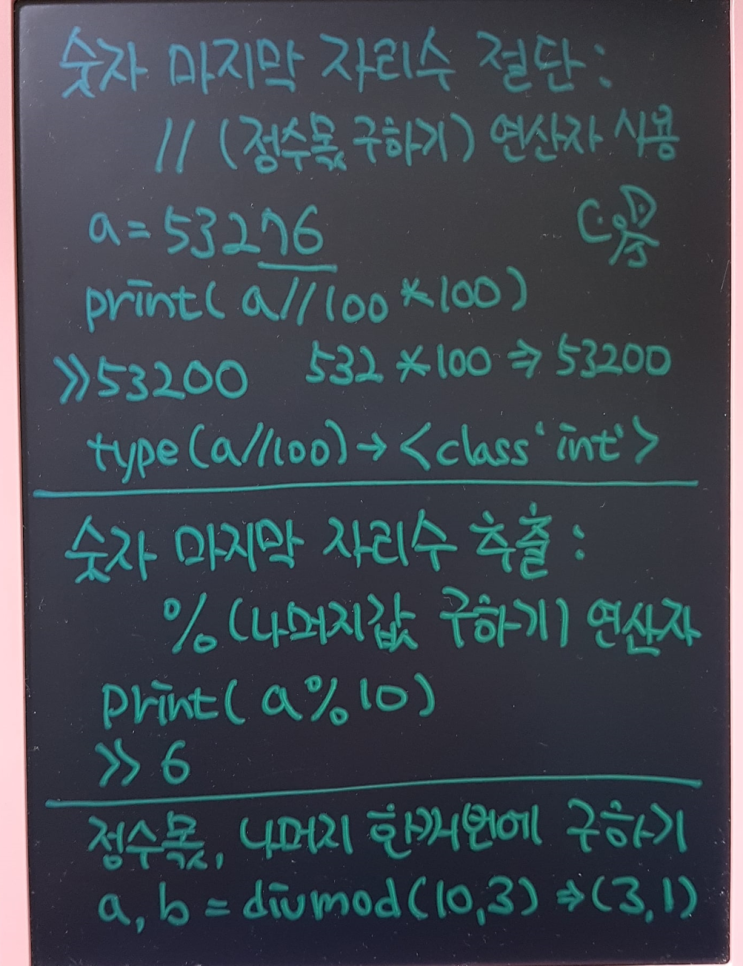 숫자 마지막 자리수 절단:
// (정수몫 구하기) 연산자 사용
a = 53276
print( a//100 *100)
>>53200 532 *100 ⇒ 53200
type(a//100)→<class 'int'>
숫자 마지막 자리수 추출:
%(나머지값 구하기) 연산자
print( a%10)
>> 6
정수몫, 나머지 한꺼번에 구하기
a, b = divmod(10,3) ⇒(3,1)